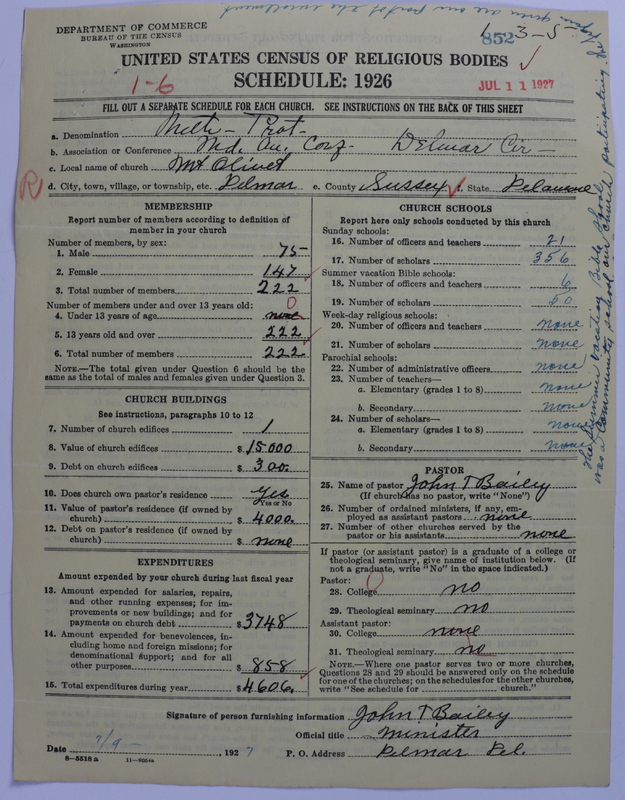 DEPARTMENT OF COMMERCE
BUREAU OF THE CENSUS
WASHINGTON
852
1-3-5-
UNITED STATES CENSUS OF RELIGIOUS BODIES
SCHEDULE: 1926
1-6
JUL 11 1927
FILL OUT A SEPARATE SCHEDULE FOR EACH CHURCH. SEE INSTRUCTIONS ON THE BACK OF THIS SHEET
a. Denomination Meth - Prot.
b. Association or Conference Md. An. Conf Delmar Cir -
c. Local name of church Mt Olivet
R
d. City, town, village, or township, etc. Delmar e. County Sussex f. State Delaware
MEMBERSHIP
Report number of members according to definition of member in your church
Number of members, by sex:
1. Male 75-
2. Female 147
3. Total number of members 222
Number of members under and over 13 years old: 0
4. Under 13 years of age none
5. 13 years old and over 222
6. Total number of members 222
NOTE.—The total given under Question 6 should be the same as the total of males and females given under Question 3.
CHURCH BUILDINGS
See instructions, paragraphs 10 to 12
7. Number of church edifices 1
8. Value of church edifices $ 15000
9. Debt on church edifices $ 300.
10. Does church own pastor's residence Yes
Yes or No
11. Value of pastor's residence (if owned by church) $ 4000.
12. Debt on pastor's residence (if owned by church) $ none
EXPENDITURES
Amount expended by your church during last fiscal year
13. Amount expended for salaries, repairs, and other running expenses; for improvements or new buildings; and for payments on church debt $ 3748
14. Amount expended for benevolences, including home and foreign missions; for denominational support; and for all other purposes $ 858
15. Total expenditures during year $ 4606.
CHURCH SCHOOLS
Report here only schools conducted by this church
Sunday schools:
16. Number of officers and teachers 21
17. Number of scholars 356
Summer vacation Bible schools:
18. Number of officers and teachers 6
19. Number of scholars 60
Week-day religious schools:
20. Number of officers and teachers none
21. Number of scholars none
Parochial schools:
22. Number of administrative officers none
23. Number of teachers—
a. Elementary (grades 1 to 8) none
b. Secondary none
24. Number of scholars—
a. Elementary (grades 1 to 8) none
b. Secondary none
PASTOR
25. Name of pastor John T Bailey
(If church has no pastor, write "None")
26. Number of ordained ministers, if any, employed as assistant pastors none
27. Number of other churches served by the pastor or his assistants none
If pastor (or assistant pastor) is a graduate of a college or theological seminary, give name of institution below. (If not a graduate, write "No" in the space indicated.)
Pastor:
28. College no
29. Theological seminary no
Assistant pastor:
30. College none
31. Theological seminary no
NOTE.—Where one pastor serves two or more churches, Questions 28 and 29 should be answered only on the schedule for one of the churches; on the schedules for the other churches, write "See schedule for church."
The Summer Vacation Bible School
was a community school our church participating. The
given are our part of the enrollment
Signature of person furnishing information John T Bailey
Official title Minister
Date 7/9 - , 1927 P. O. Address Delmar Del.
8-5518 a 11-9054a